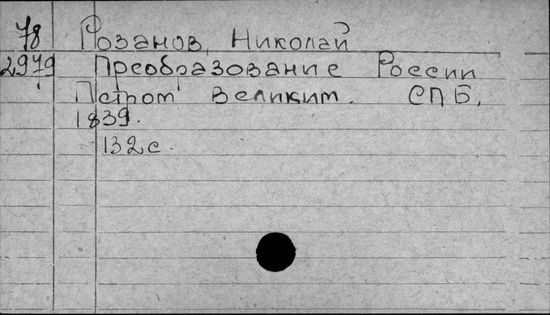 78 Розанов, Николай
2979 Преобразование России
Петром Великим. СПБ,
1839.
132 с.